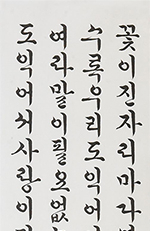 꽃이진자리마다
수록우리도익어
여라말이필요없
도익어서사랑이